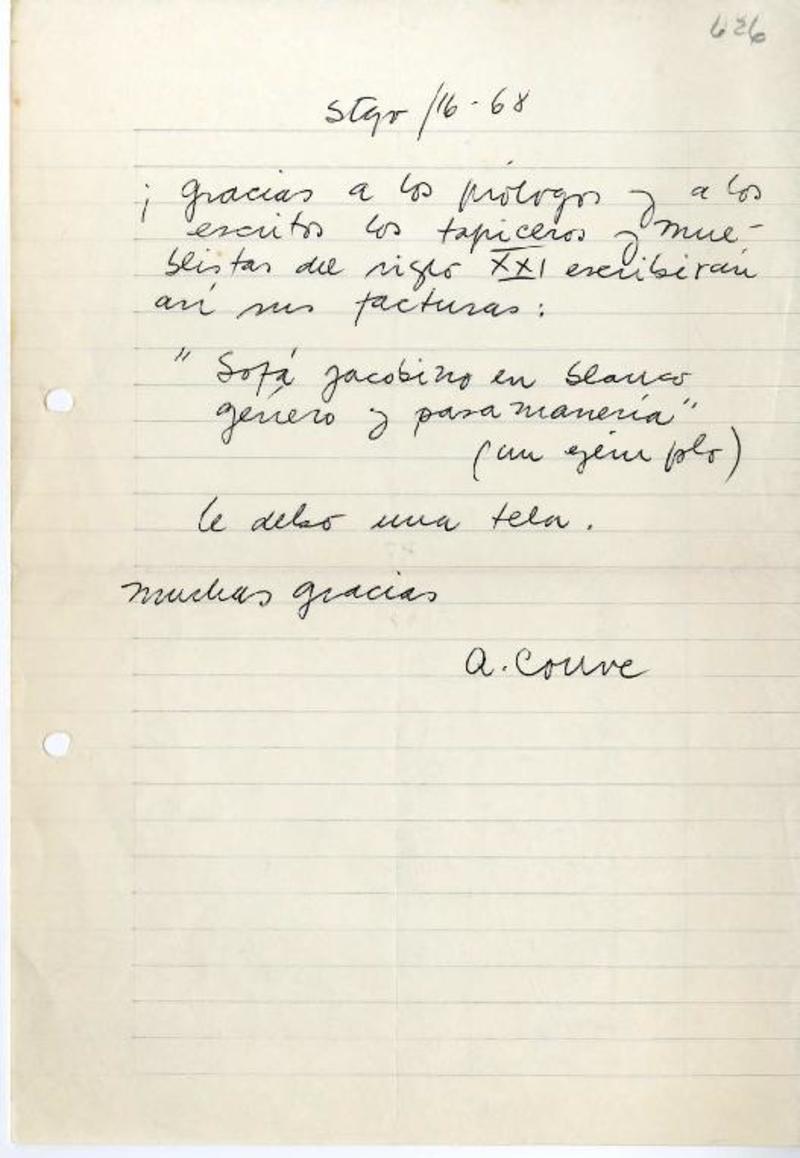 626
Stgo /16-68
¡ gracias a los prólogos y a los
escritos los tapiceros y mue-
blistas del siglo XXI escribirán
así sus facturas:
" Sofá jacobino en blanco
género y pasamanería"
(un ejemplo)
le debo una tela.
muchas gracias
A. Couve